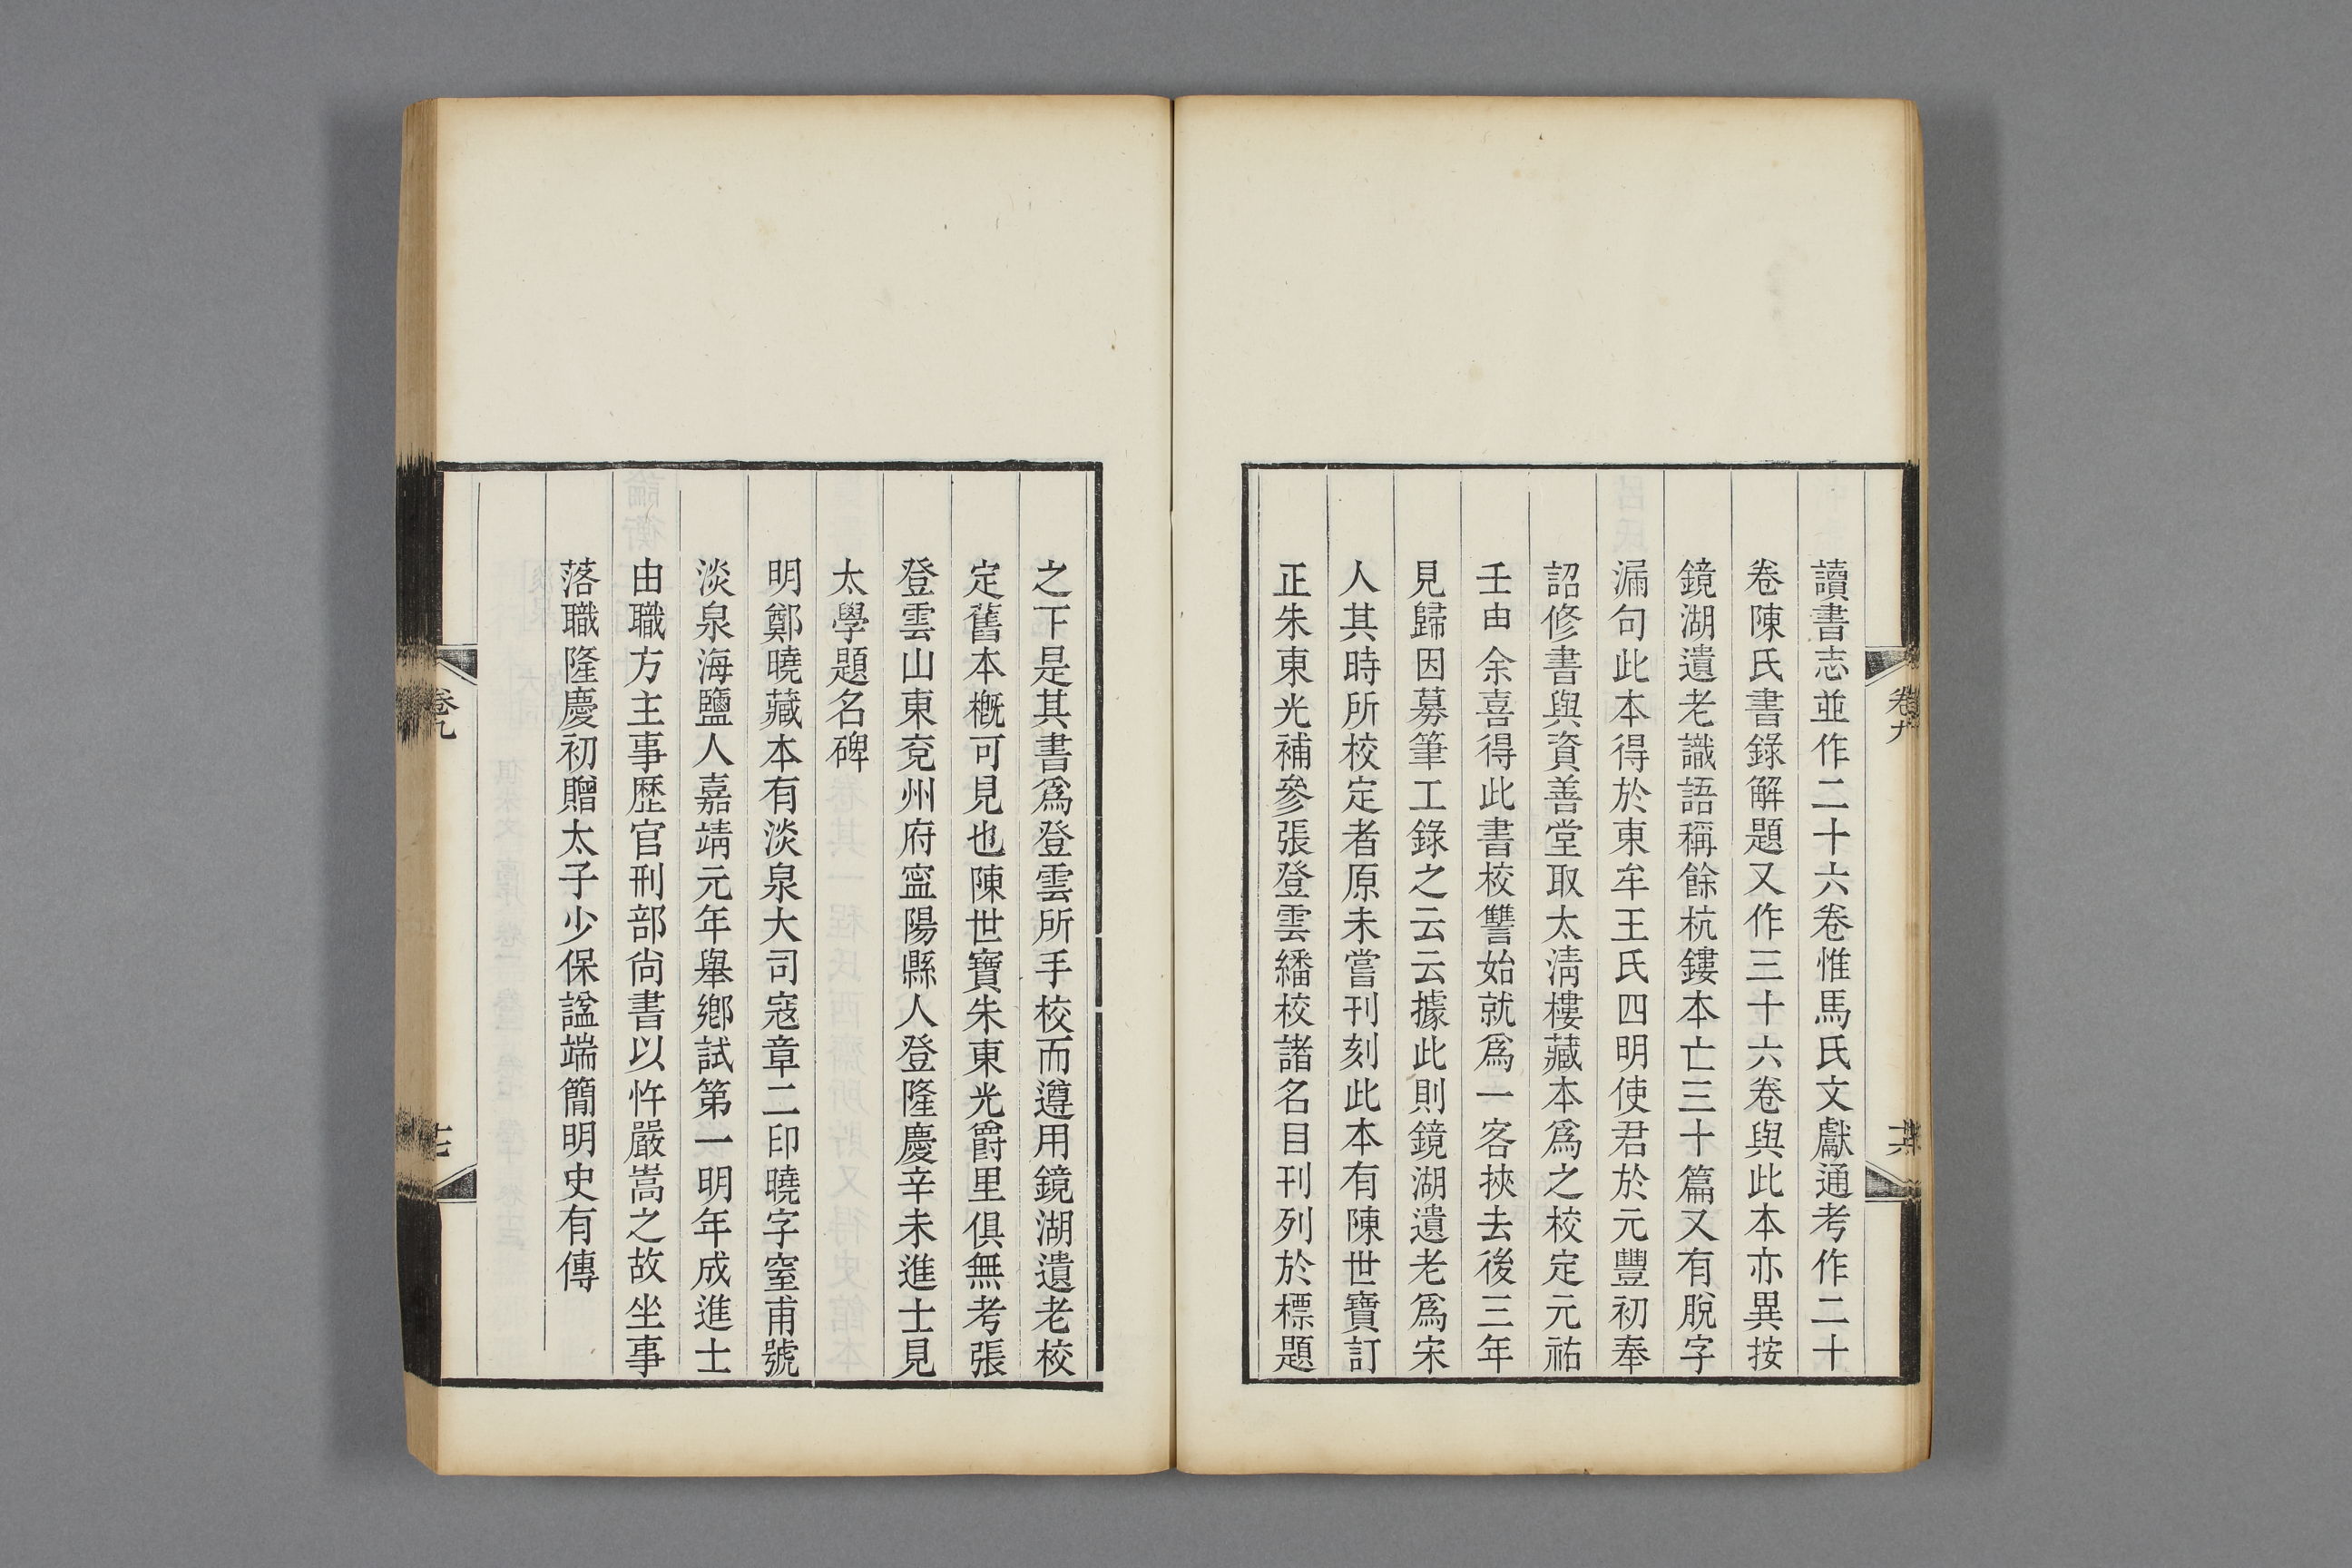 讀書志並作二十六卷惟馬氏文獻通考作二十
卷陳氏書錄解題又作三十六卷與此本亦異按
鏡湖遺老識語稱餘杭鏤本亡三十篇又有脫字
漏句此本得於東牟王氏四明使君於元豐初奉
詔修書與資善堂取太淸樓藏本爲之校定元祐
壬由余喜得此書校讐始就爲一客挾去後三年
見歸因募筆工錄之云云據此則鏡湖遺老爲宋
人其時所校定者原未嘗刊刻此本有陳世寶訂
正朱東光補參張登雲繙校諸名目刊列於標題
卷九
之下是其書爲登雲所手校而遵用鏡湖遺老校
定舊本槪可見也陳世寶朱東光爵里俱無考張
登雲山東兗州府寍陽縣人登隆慶辛未進士見
太學題名碑
明鄭曉藏本有淡泉大司寇章二印曉字窒甫號
淡泉海鹽人嘉靖元年舉鄉試第一明年成進士
由職方主事歷官刑部尙書以忤嚴嵩之故坐事
落職隆慶初贈太子少保諡端簡明史有傳
卷九